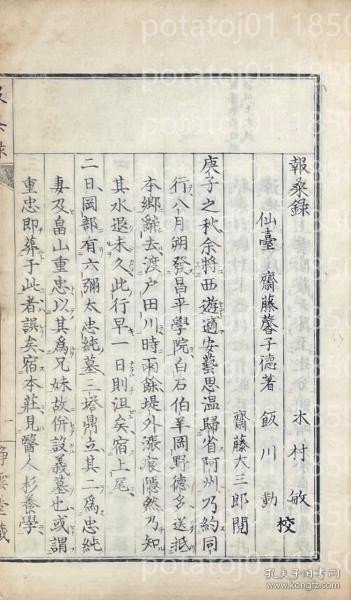 報桑録
木村敏
仙臺 齋藤馨子德著 飯川勤 校
齋藤大三郎閲
庚子之秋余將西遊適安藝思温歸省阿州乃約同
行八月朔發昌平學院白石伯羊岡野德多送抵
本鄉辭去渡戸田川時雨餘堤外漲痕隱然乃知
其水退未久此行早一日則沮矣宿上尾
二日岡部有六彌太忠純墓三塔鼎立其二為忠純
妻及畠山重忠以其為兄妹故併設義墓也或謂
重忠即葬于此者誤矣宿本莊見醫人杉養學
一 靜雲堂藏
potatoj01 1850
potatoj01 1850
孔夫子旧书网